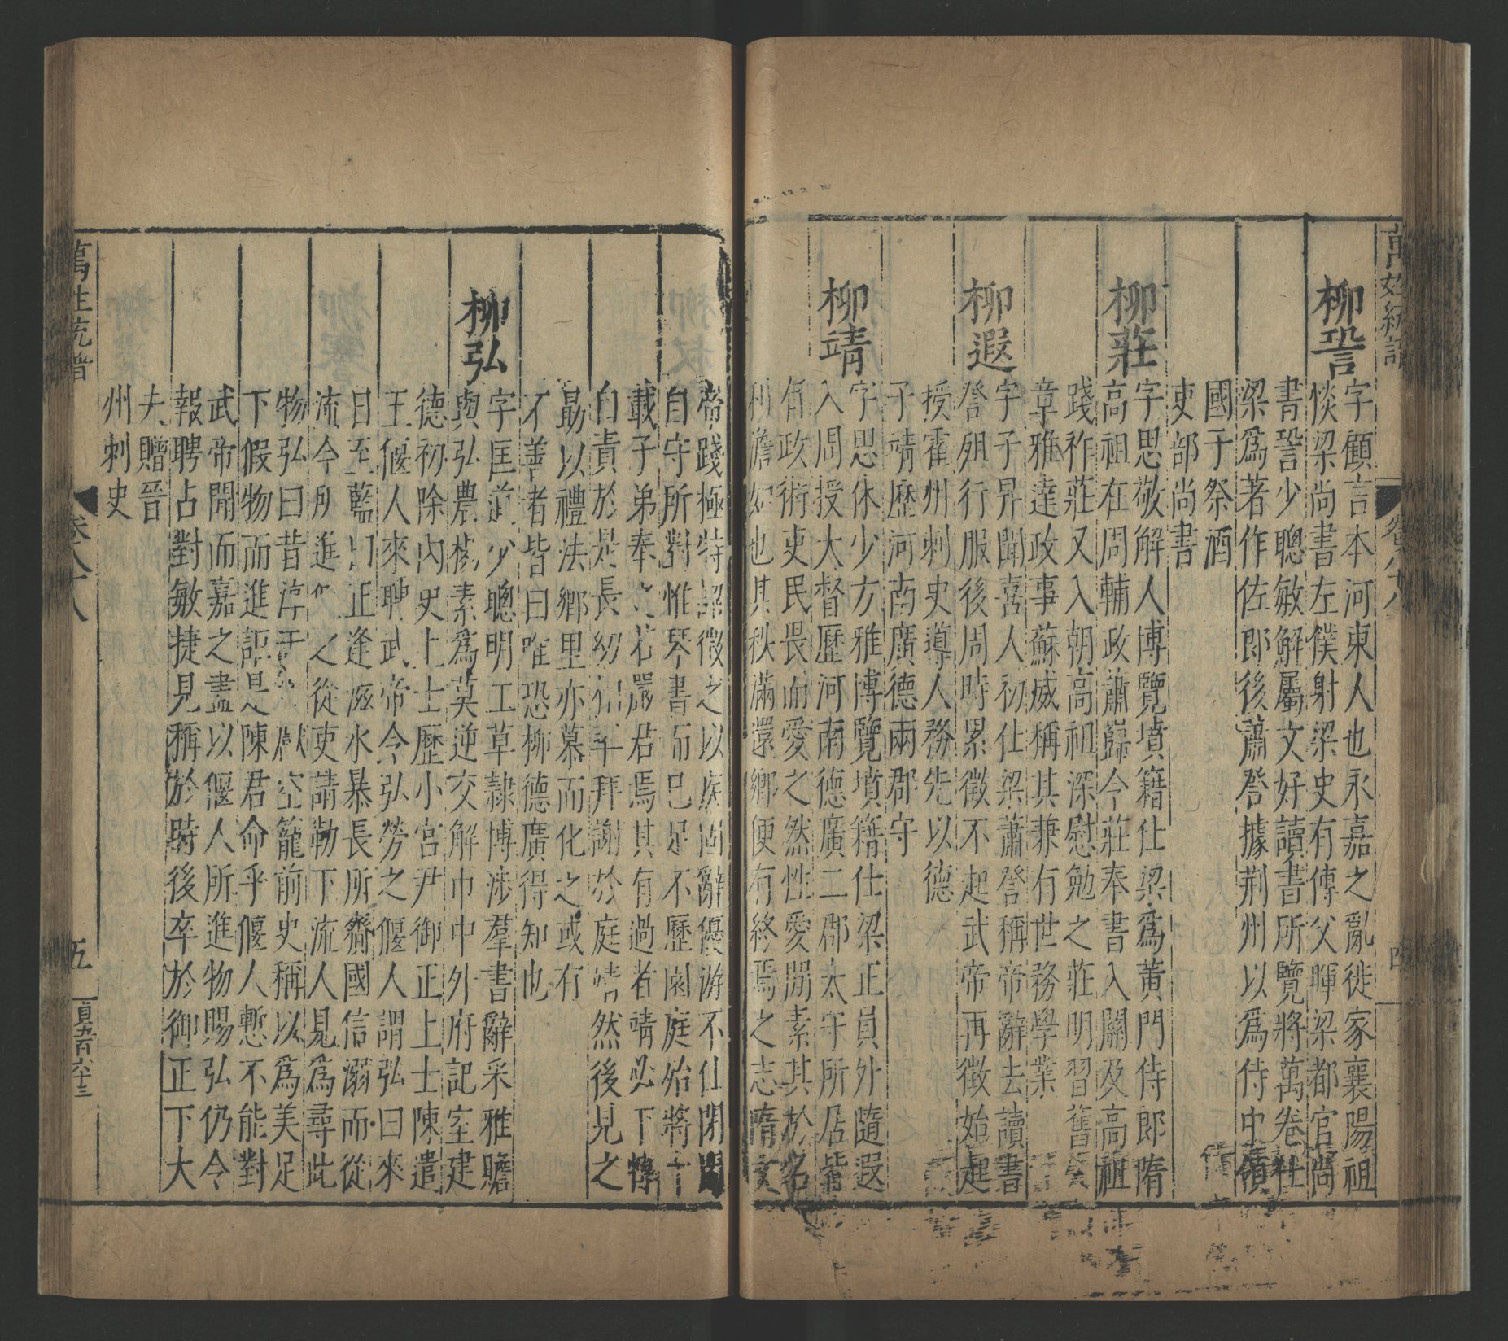 萬姓統譜 卷八十八 四
柳䛒
字顧言本河東人也永嘉之亂徙家襄陽祖
惔梁尚書左僕射梁史有傳父暉梁都官尚
書䛒少聰敏解屬文好讀書所覽將萬卷仕
梁爲著作佐郎後蕭詧據荊州以爲侍中領
國子祭酒
吏部尚書
柳莊
字思敬解人博覽墳籍仕梁爲黃門侍郎隋
高祖在周輔政蕭巋令莊奉書入關及高祖
踐祚莊又入朝高祖深慰勉之莊明習舊
章雅達政事蘇威稱其兼有世務學業
柳遐
字子昇聞喜人初仕梁蕭詧稱帝辭去讀書
詧殂行服後周時累徵不起武帝再徵始起
授霍州刺史導人務先以德
子靖歷河南廣德兩郡守
柳靖
字思休少方雅博覽墳籍仕梁正員外隨遐
入周授大督歷河南德廣二郡太守所居皆
有政術吏民畏而愛之然性愛閒素其於名
利澹如也其秩滿還鄉便有終焉之志隋文
帝踐極特詔徵之以疾固辭優游不仕閉門
自守所對惟琴書而已足不歷園庭殆將十
載子弟奉之若嚴君焉其有過者靖必下幃
自責於是長幼相率拜謝於庭靖然後見之
勗以禮法鄉里亦慕而化之或有
不善者皆曰唯恐柳德廣得知也
柳弘
字匡道少聰明工草隸博涉羣書辭采雅贍
與弘農楊素爲莫逆交解巾中外府記室建
德初除內史上士歷小宮尹御正上士陳遣
王偃人來聘武帝令弘勞之偃人謂弘曰來
日至藍田正逢滋水暴長所齎國信溺而從
流今所進假之從吏請勒下流人見爲尋此
物弘曰昔淳于之獻空籠前史稱以爲美足
下假物而進詎是陳君命乎偃人慙不能對
武帝聞而嘉之盡以偃人所進物賜弘仍令
報聘占對敏捷見稱於時後卒於御正下大
夫贈晉
州刺史
萬姓統譜 卷八十八 五